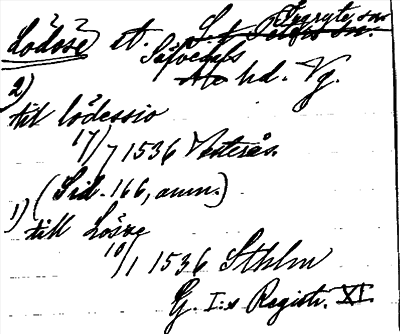 Lödöse st. S:t Peders sn.
Fuxryte, sn.
Sävedals
Ale hd. Vg.
2)
till lödessio
17/7 1536 Vesterås.
(Sid. 166, anm.)
1)
till Lösve
10/1 1536 Sthlm
G. I:s Registr. XI.